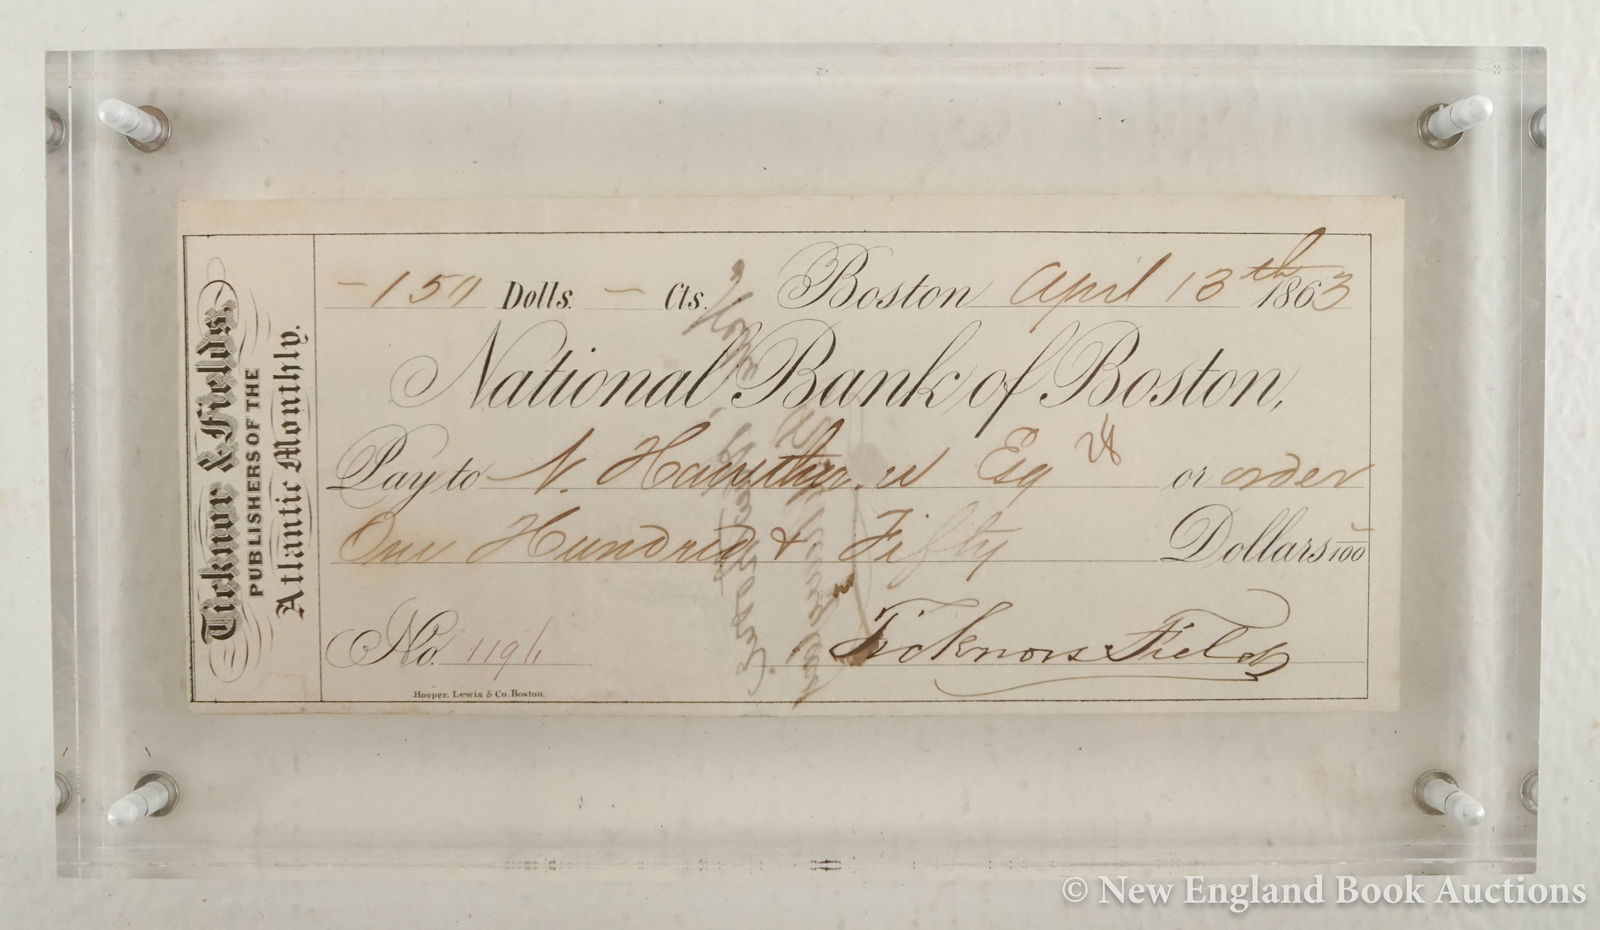 Ticknor & Fields,
PUBLISHERS OF THE
Atlantic Monthly.
-150 Dolls. - Cts. Boston April 13th 1863
National Bank of Boston,
Pay to N. Hawthorne Esq or order
One Hundred & Fifty Dollars 100
No. 1196
Ticknor & Fields
Hooper, Lewis & Co. Boston.
© New England Book Auctions